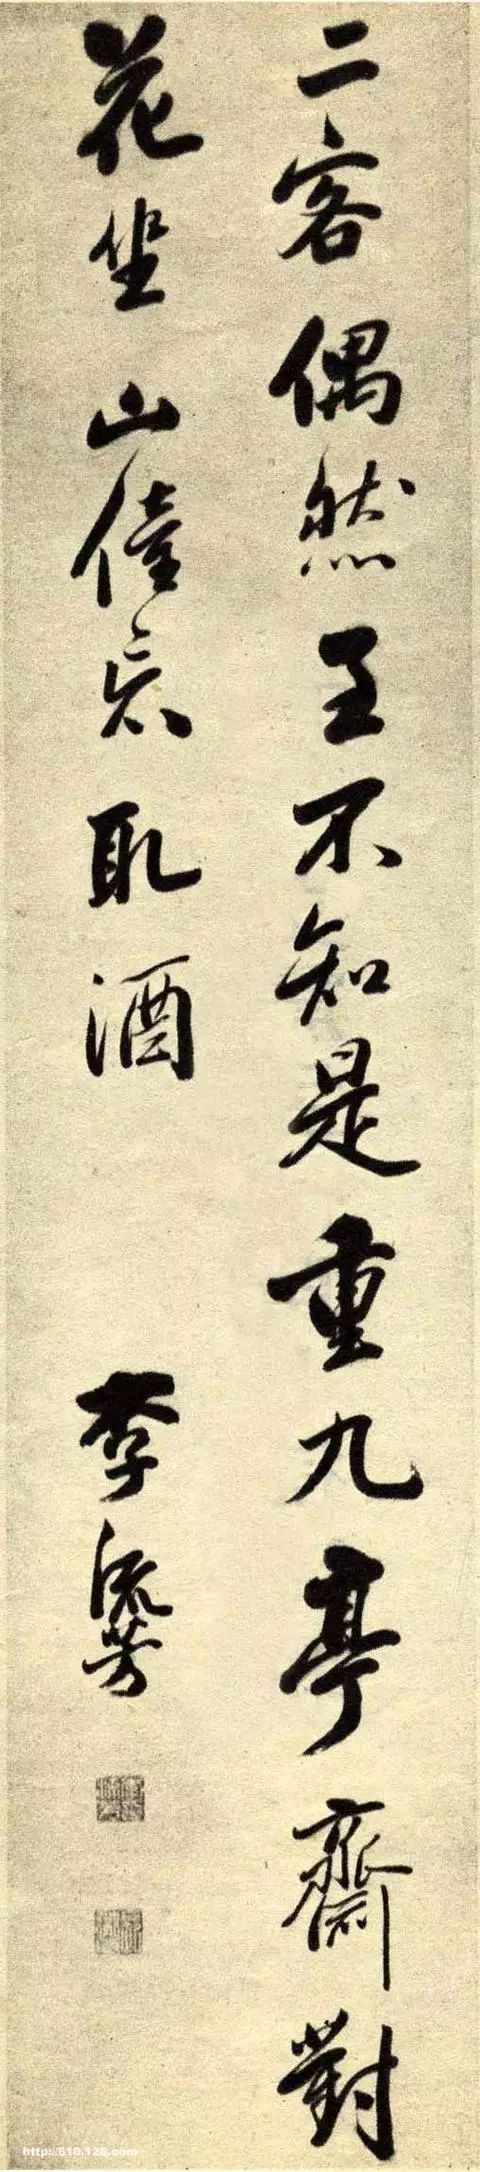 二客偶然至不知是重九亭齋對
花坐山僮忘取酒
李流芳
http://610.126.com